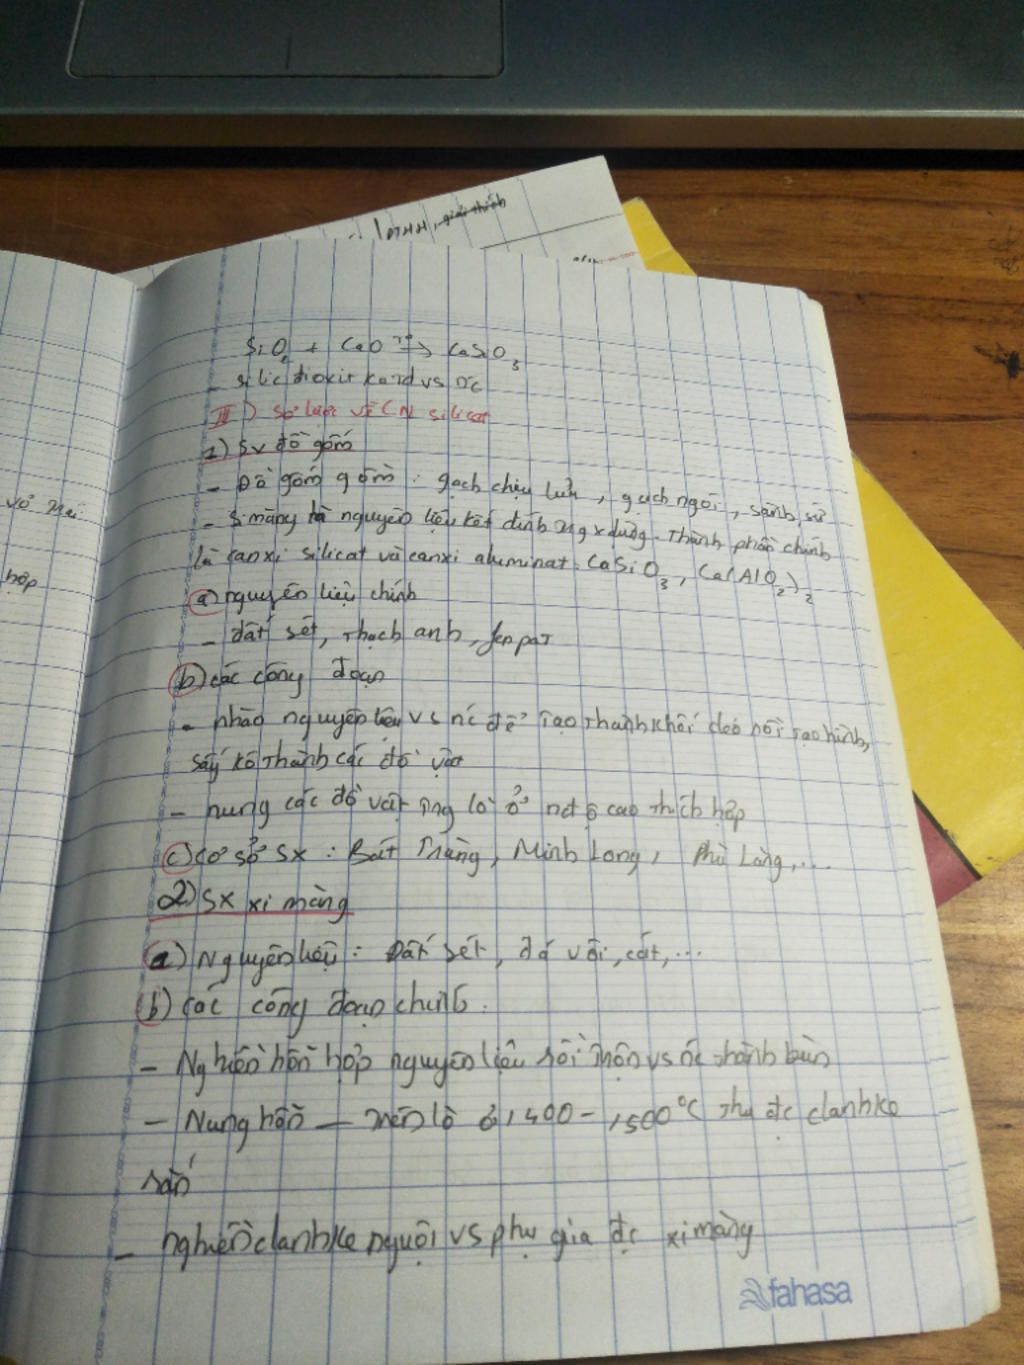 PTHH, giải thích
SiO2 + CaO t° → CaSiO3
- silic đioxit ko td vs nc
III) Sơ lược về CN silicat
1) SX đồ gốm
- Đồ gốm gồm: gạch chịu lửa, gạch ngói, sành, sứ
- Ximăng là nguyên liệu kết dính trg xdựng. Thành phần chính
là canxi silicat và canxi aluminat. CaSiO3, Ca(AlO2)2
a) nguyên liệu chính
- đất sét, thạch anh, fenpat
b) các công đoạn
- nhào nguyên liệu vs nc để tạo thành khối dẻo rồi tạo hình,
sấy khô thành các đồ vật
- nung các đồ vật trng lò ở nđộ cao thích hợp
c) cơ sở sx: Bát Tràng, Minh Long, Phù Lãng,...
2) SX xi măng
a) Nguyên liệu: Đất sét, đá vôi, cát,...
b) các công đoạn chính:
- Nghiền hỗn hợp nguyên liệu rồi trộn vs nc thành bùn
- Nung hỗn — trên lò ở 1400 - 1500°C thu đc clanhke
rắn
- nghiền clanhke nguội vs phụ gia đc ximăng
hợp
fahasa